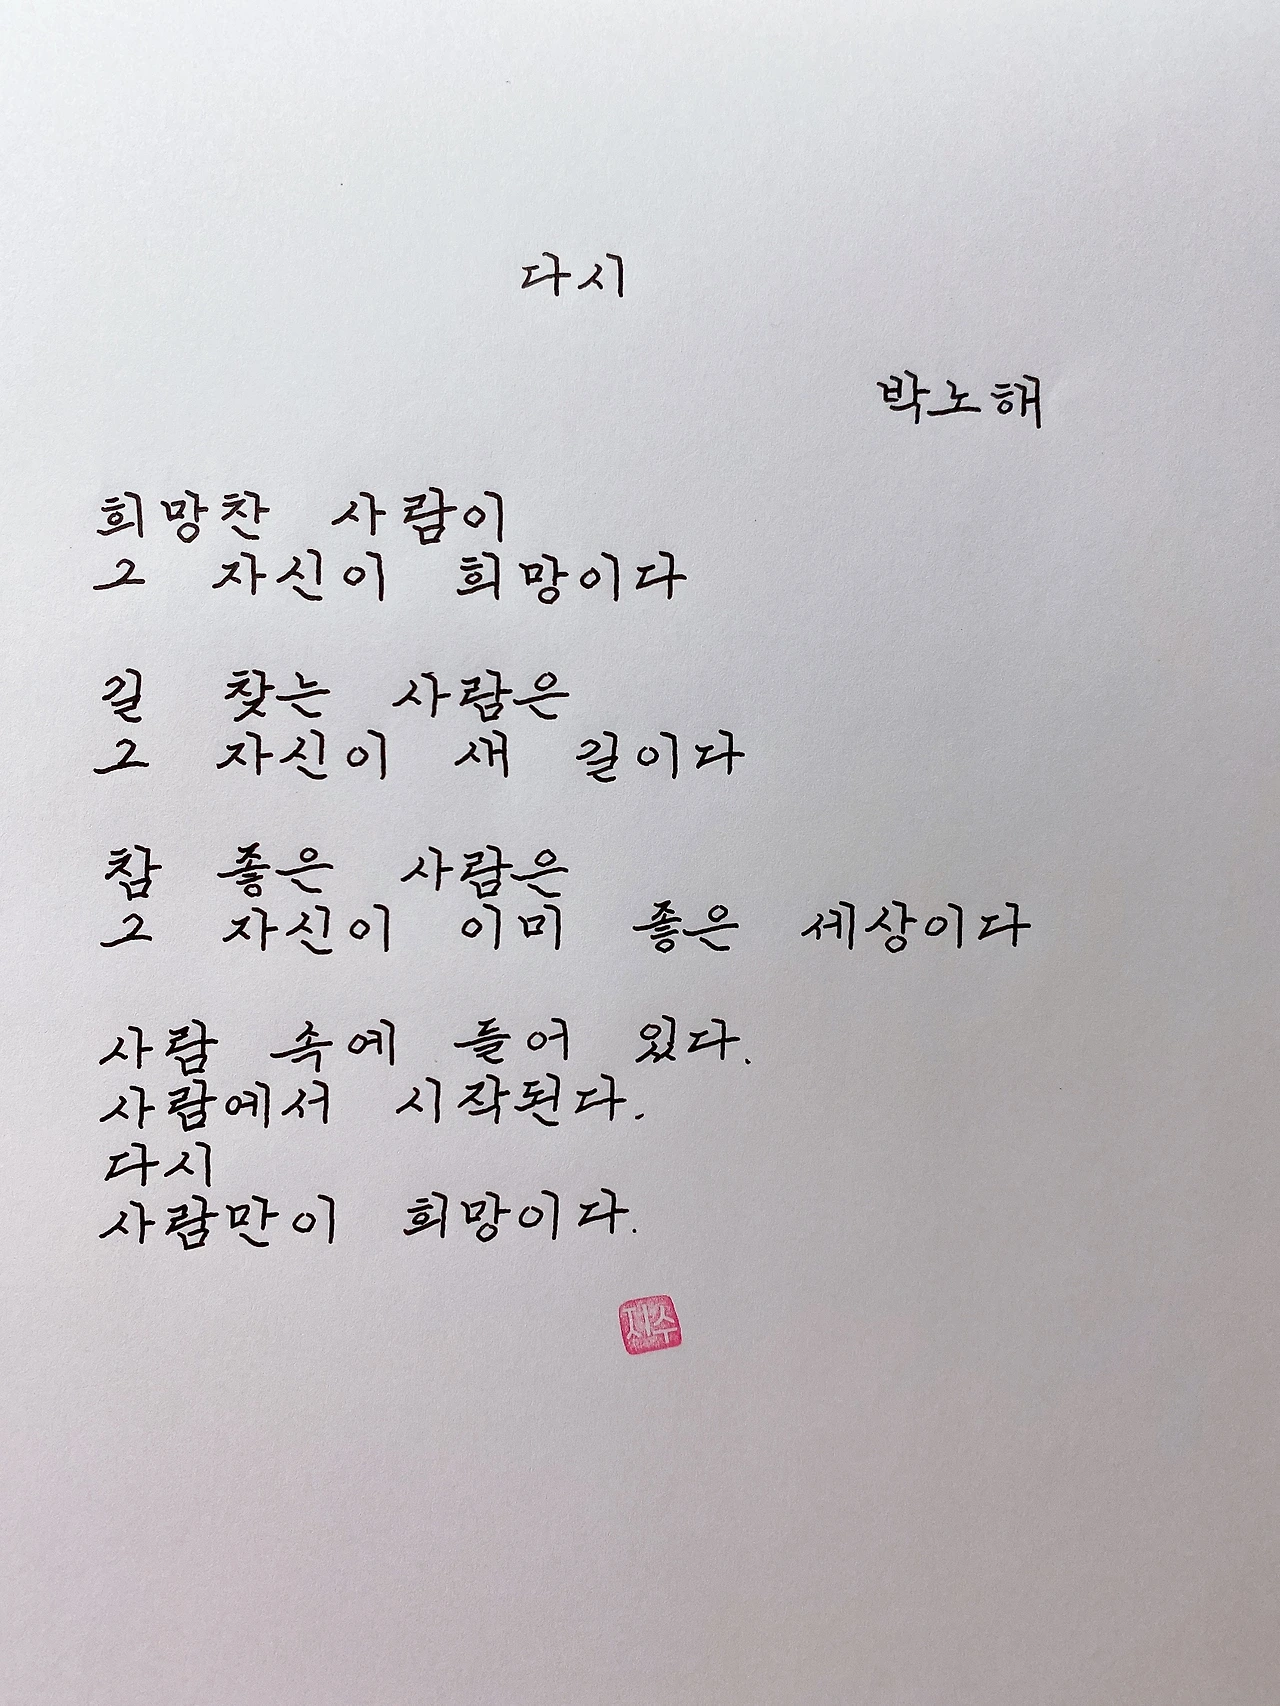 다시
박노해
희망찬 사람이
그 자신이 희망이다
길 찾는 사람은
그 자신이 새 길이다
참 좋은 사람은
그 자신이 이미 좋은 세상이다
사람 속에 들어 있다.
사람에서 시작된다.
다시
사람만이 희망이다.
재수